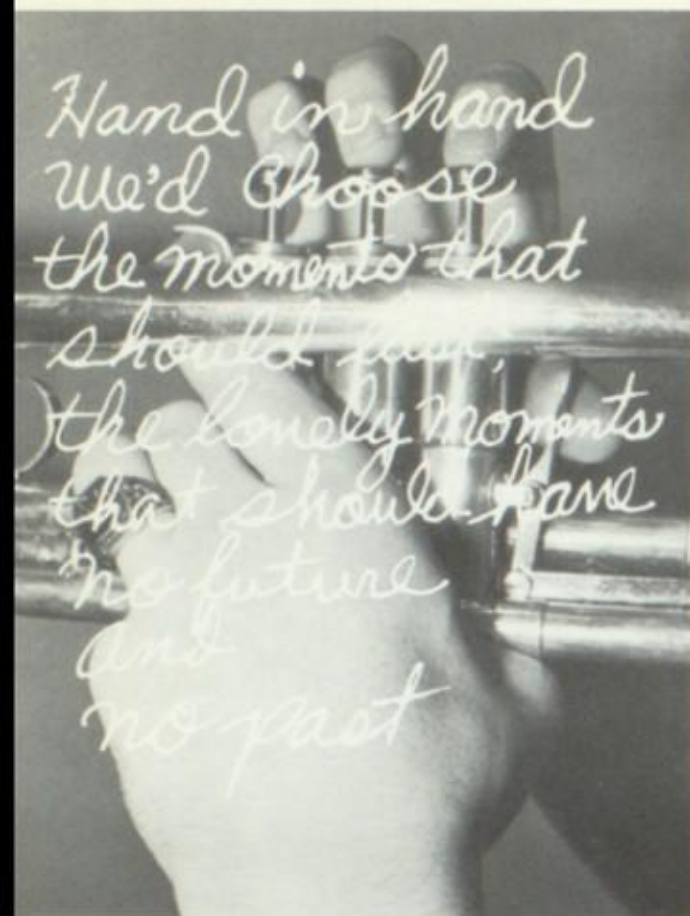 Hand in hand
We'd Choose
the moments that
should last,
the lonely moments
that should have
no future
and
no past